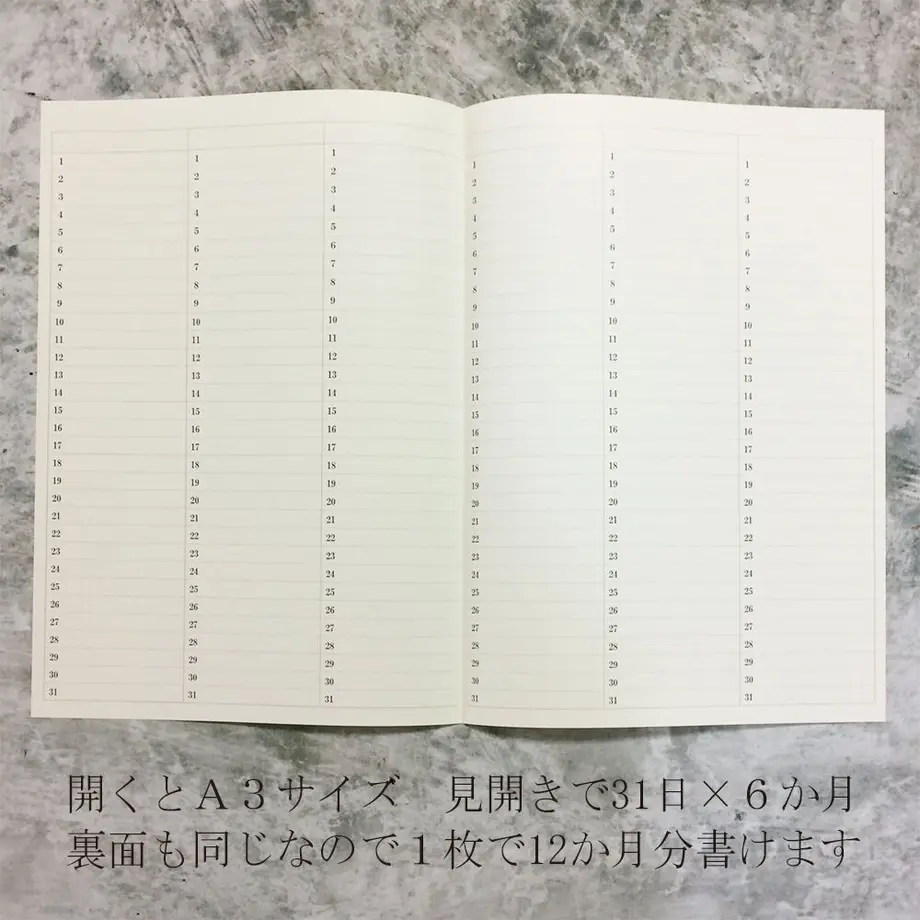 1 1 1 1 1 1
2 2 2 2 2 2
3 3 3 3 3 3
4 4 4 4 4 4
5 5 5 5 5 5
6 6 6 6 6 6
7 7 7 7 7 7
8 8 8 8 8 8
9 9 9 9 9 9
10 10 10 10 10 10
11 11 11 11 11 11
12 12 12 12 12 12
13 13 13 13 13 13
14 14 14 14 14 14
15 15 15 15 15 15
16 16 16 16 16 16
17 17 17 17 17 17
18 18 18 18 18 18
19 19 19 19 19 19
20 20 20 20 20 20
21 21 21 21 21 21
22 22 22 22 22 22
23 23 23 23 23 23
24 24 24 24 24 24
25 25 25 25 25 25
26 26 26 26 26 26
27 27 27 27 27 27
28 28 28 28 28 28
29 29 29 29 29 29
30 30 30 30 30 30
31 31 31 31 31 31
開くとA3サイズ 見開きで31日×6か月
裏面も同じなので1枚で12か月分書けます